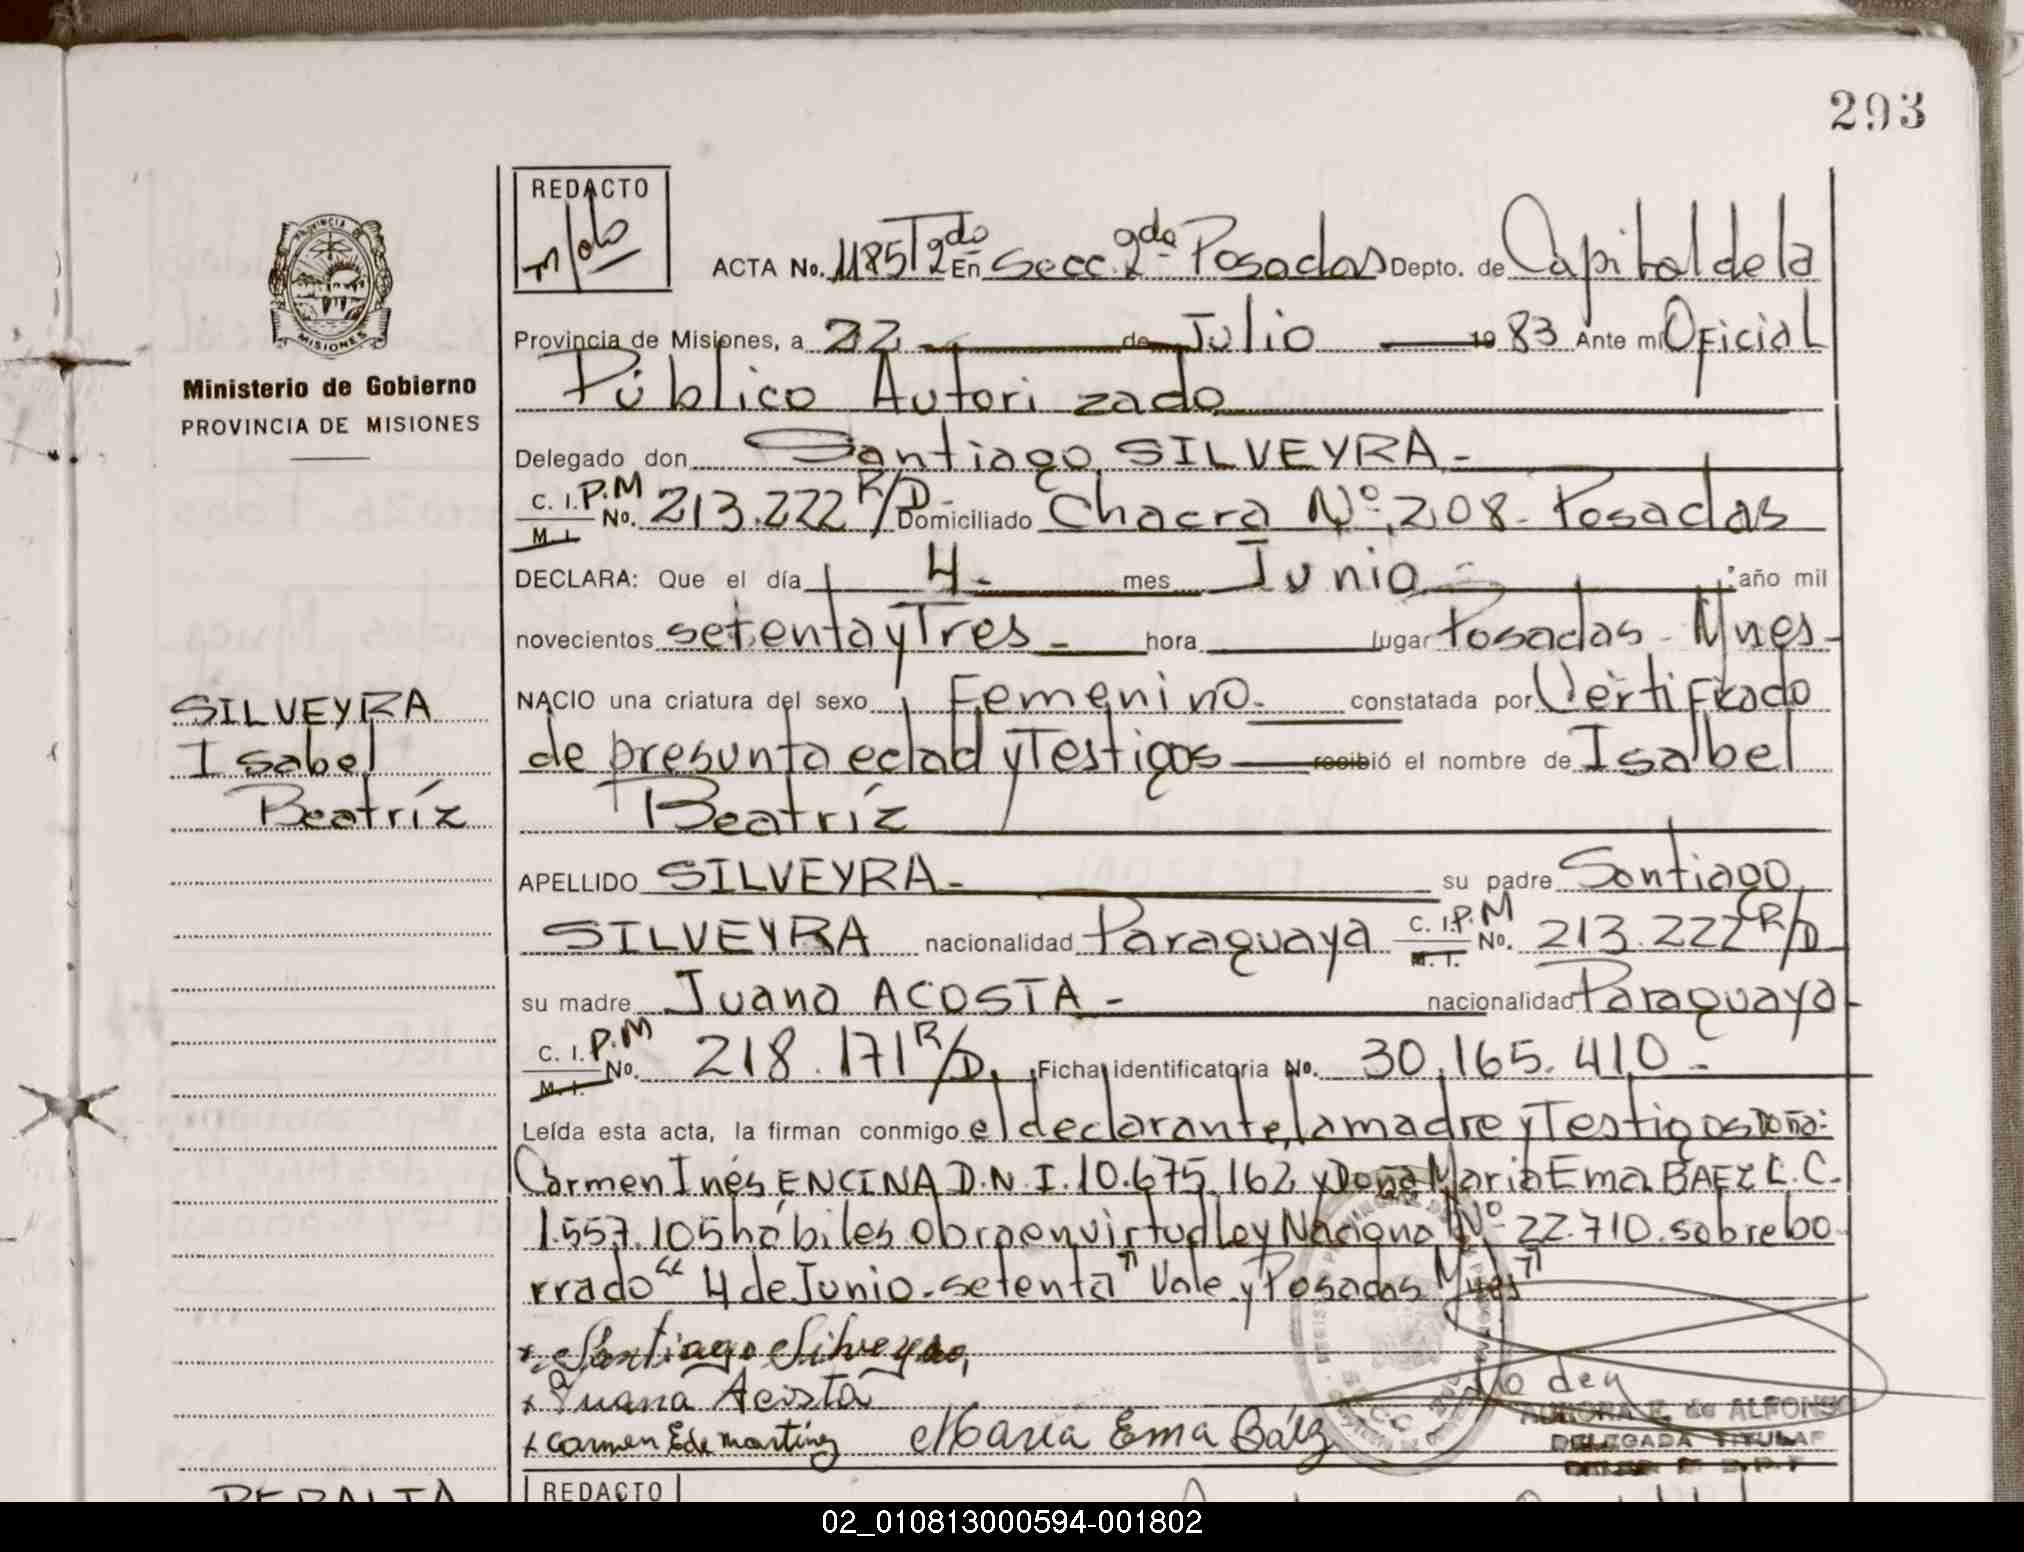 293
REDACTO
ACTA No. 1185 T 2do En Secc. 2da Posadas Depto. de Capital de la
Provincia de Misiones, a 22 de Julio 1983 Ante mi Oficial
Ministerio de Gobierno
PROVINCIA DE MISIONES
Público Autorizado
Delegado don Santiago SILVEYRA -
C. I. P.M M. I. No. 213.222 R/D Domiciliado Chacra Nº 208 - Posadas
DECLARA: Que el día 4 - mes Junio - año mil
novecientos setenta y Tres - hora lugar Posadas - Mnes -
NACIO una criatura del sexo Femenino - constatada por Certificado
de presunta edad y Testigos recibió el nombre de Isabel
Beatríz
SILVEYRA
Isabel
Beatríz
APELLIDO SILVEYRA - su padre Santiago
SILVEYRA nacionalidad Paraguaya C. I. P.M M. I. No. 213.222 R/D
su madre Juana ACOSTA - nacionalidad Paraguaya
C. I. P.M M. I. No. 218.171 R/D. Ficha identificatoria No. 30.165.410 -
Leída esta acta, la firman conmigo el declarante, la madre y Testigos Doña:
Carmen Inés ENCINA D.N.I. 10.675.162 y Doña Maria Ema BAEZ L.C.
1.557.105 hábiles obra en virtud Ley Nacional Nº 22.710. sobre bo
rrado "4 de Junio - setenta" Vale y Posadas Mnes"
x Santiago Silveyra
x Juana Acosta
x Carmen E de martinez Maria Ema Báez
AURORA E. de ALFONSO
DELEGADA TITULAR
PERALTA
REDACTO
02_010813000594-001802